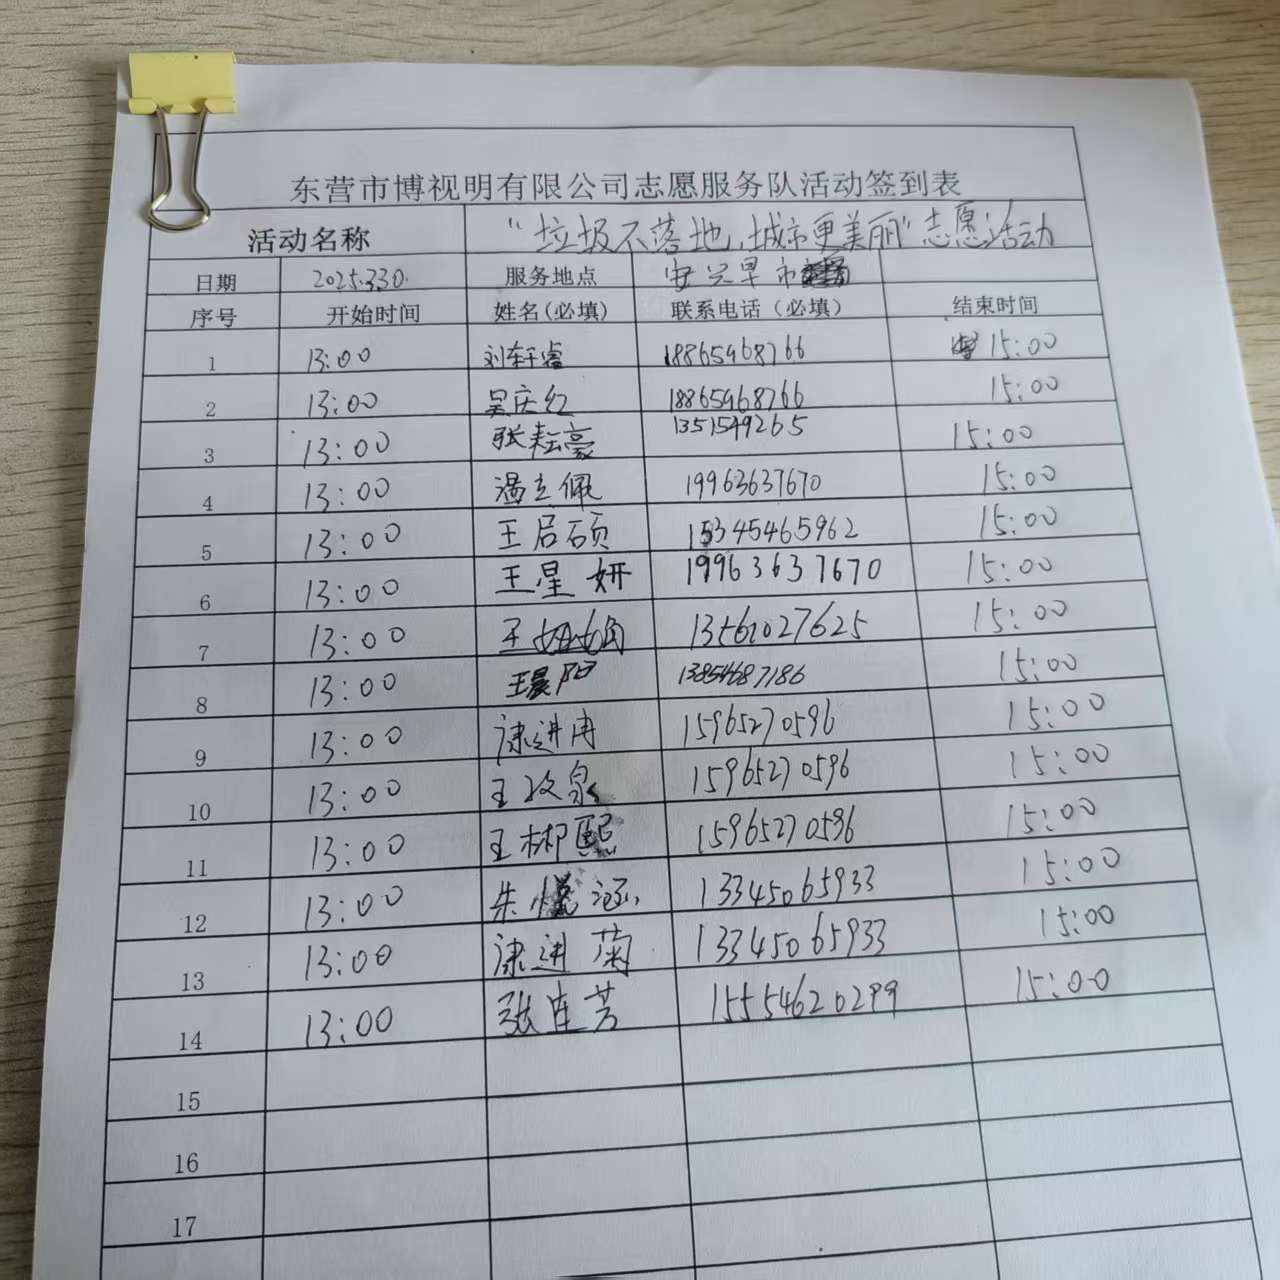 东营市博视明有限公司志愿服务队活动签到表
活动名称 “垃圾不落地,城市更美丽”志愿活动
日期 2025.3.30. 服务地点 安兴早市
序号 开始时间 姓名(必填) 联系电话（必填） 结束时间
1 13:00 刘轩睿 18865968766 15:00
2 13:00 吴庆红 18865968766 15:00
3 13:00 张耘豪 13515499265 15:00
4 13:00 潘立佩 19963637670 15:00
5 13:00 王居硕 15345465962 15:00
6 13:00 王星妍 19963637670 15:00
7 13:00 王 13561027625 15:00
8 13:00 王晨阳 13854687186 15:00
9 13:00 康进冉 15965270596 15:00
10 13:00 王政泉 15965270596 15:00
11 13:00 王彬熙 15965270596 15:00
12 13:00 朱悦涵 13345065933 15:00
13 13:00 康进菊 13345065933 15:00
14 13:00 张连芳 15554620299 15:00
15
16
17